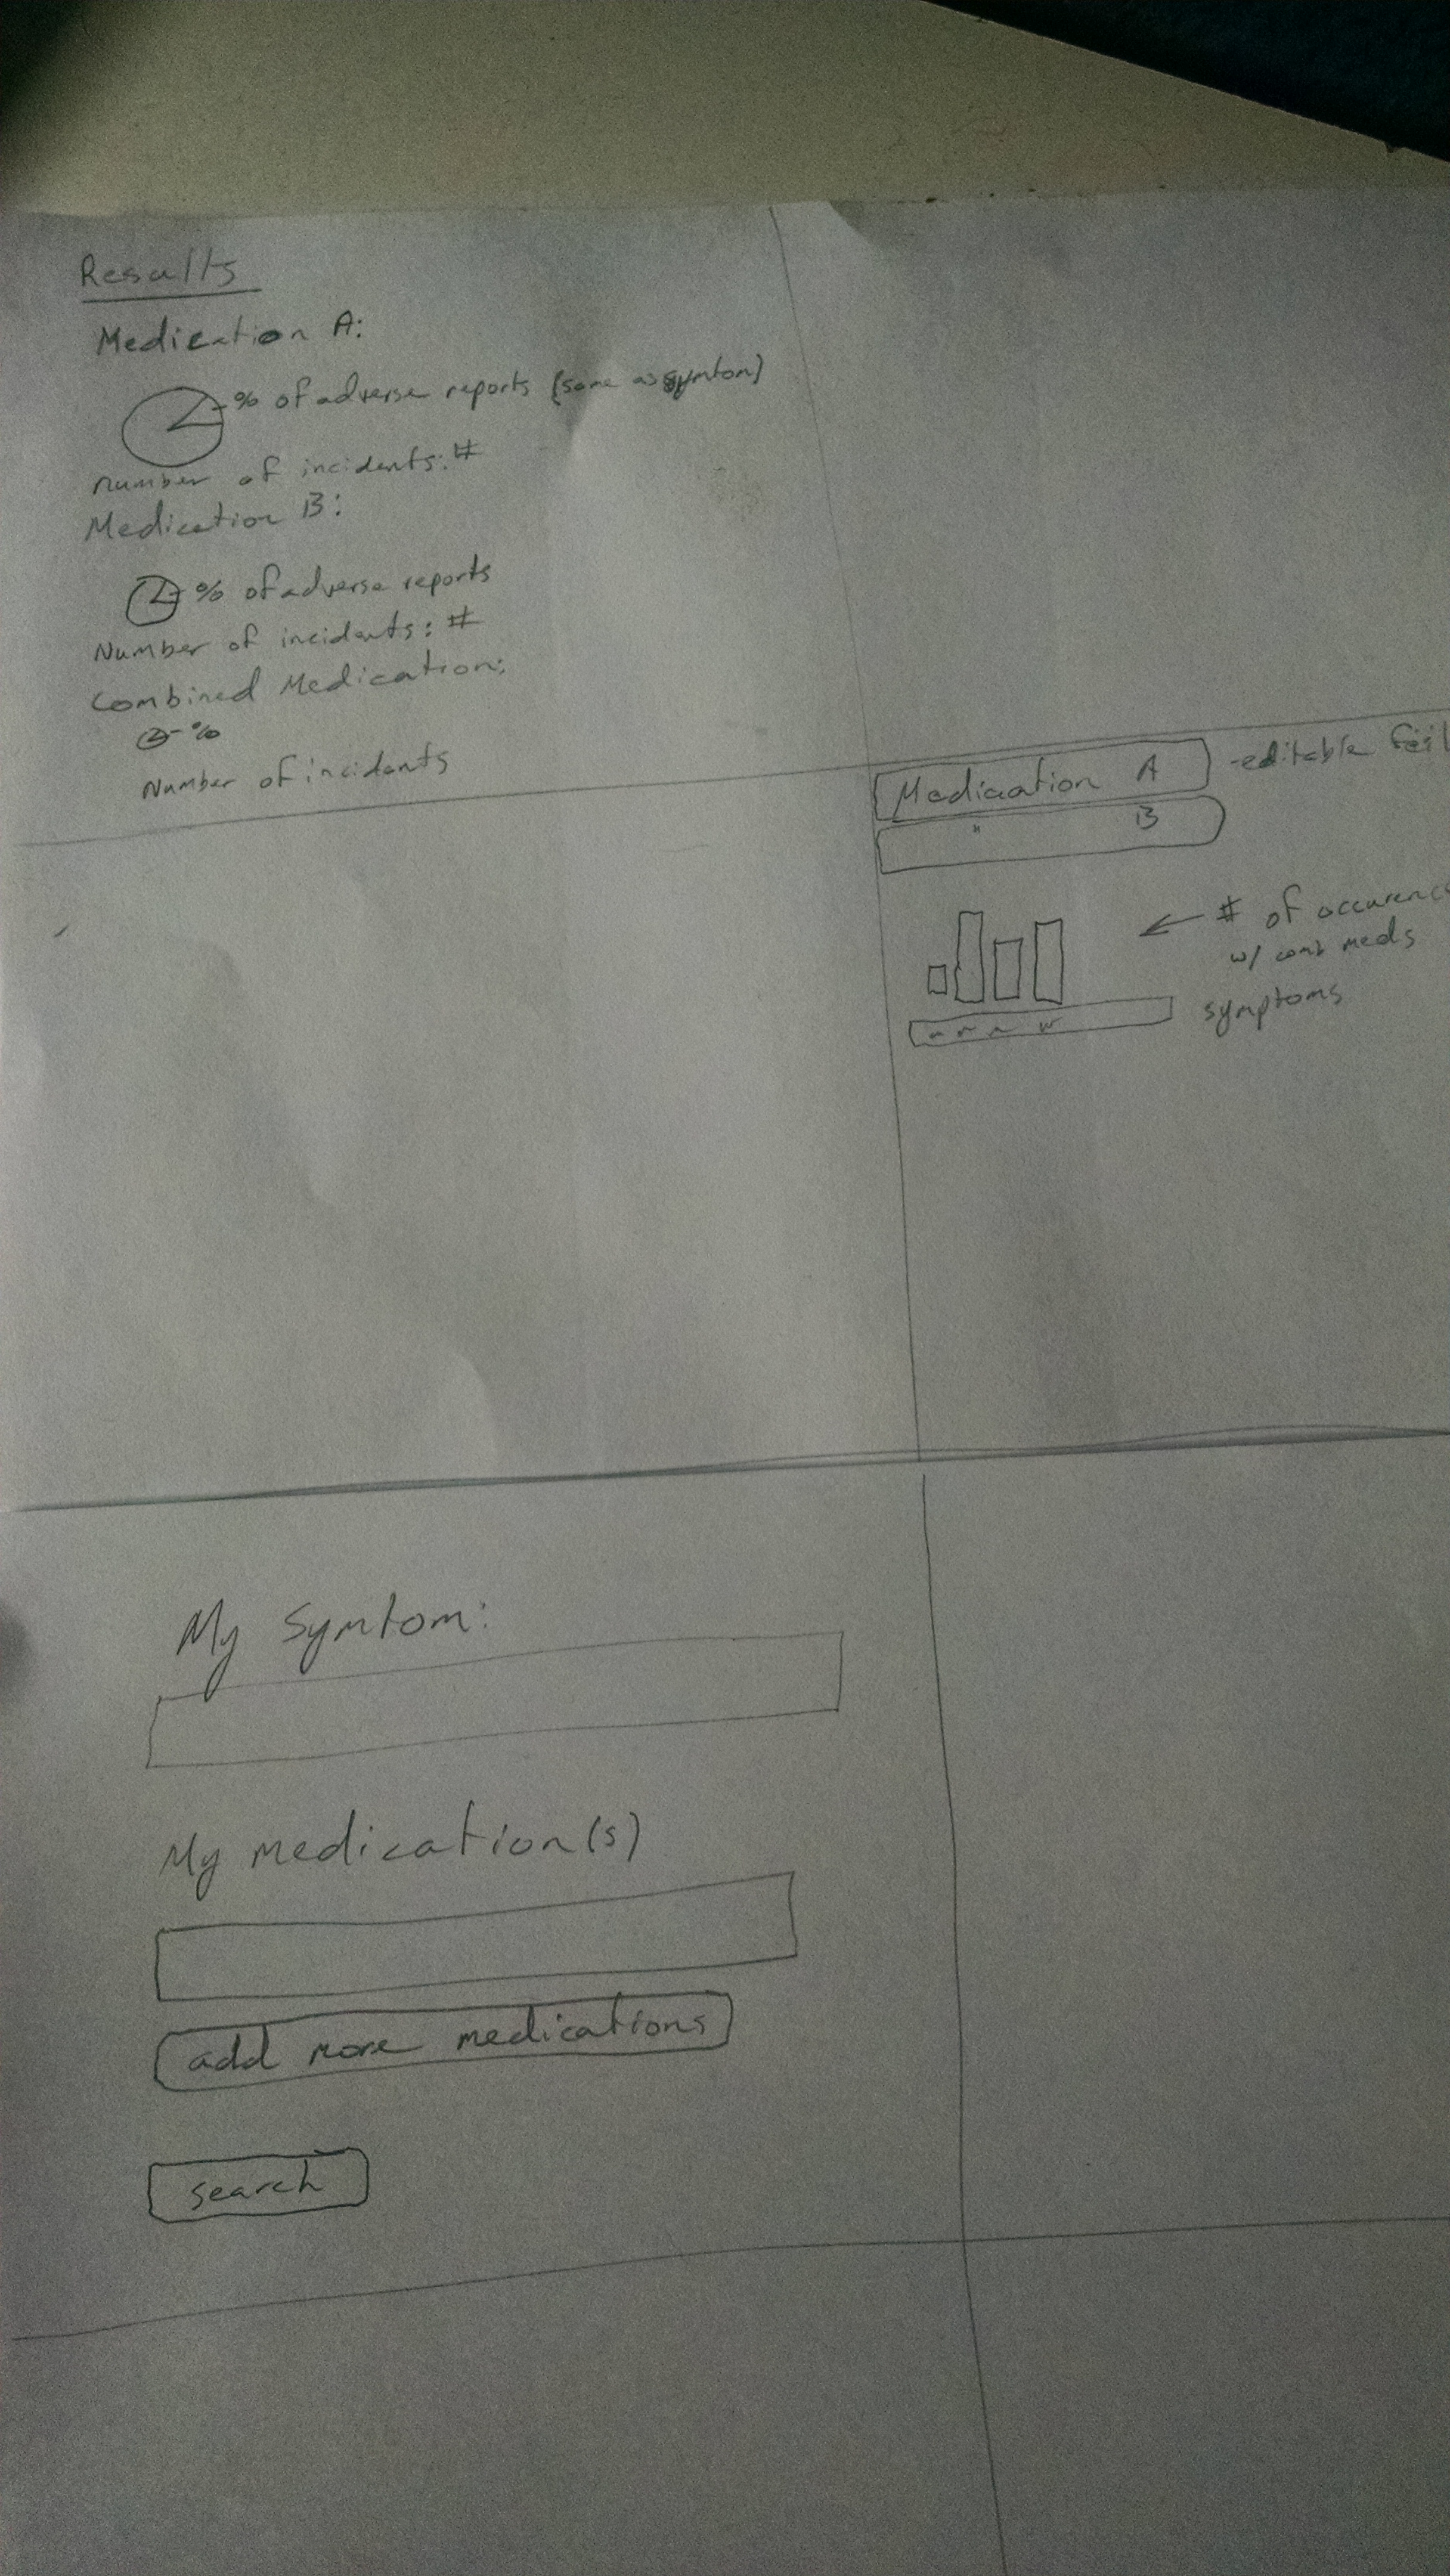 Results
Medication A:
% of adverse reports (same as symtom)
number of incidents: #
Medication B:
% of adverse reports
Number of incidents: #
Combined Medication:
%
Number of incidents
Medication A
-editable
" B
# of
w/ comb meds
symptoms
My Symtom:
My medication(s)
add more medications
search